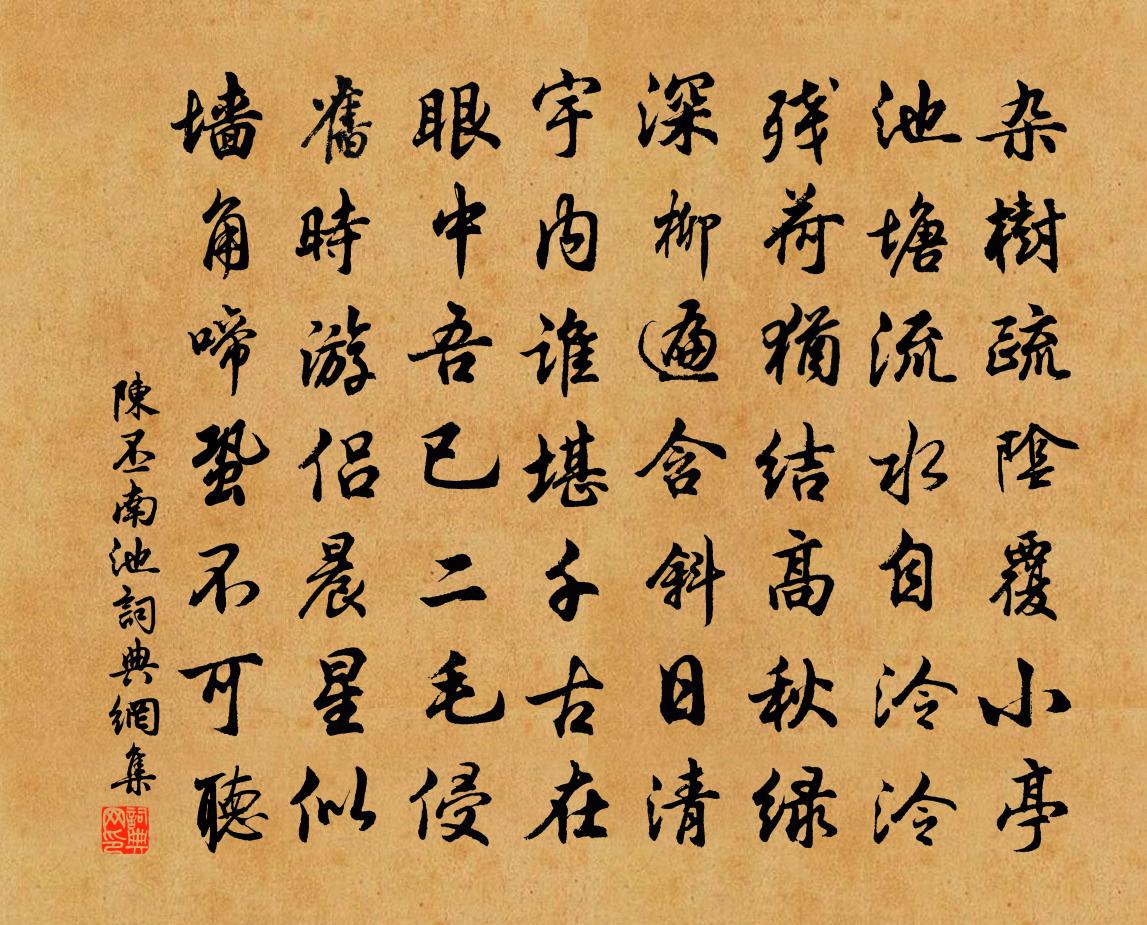 杂樹疏陰覆小亭
池塘流水自泠泠
残荷猶结高秋緑
深柳遍含斜日清
宇内谁堪千古在
眼中吾已二毛侵
舊時游侣晨星似
墙角啼蛩不可聽
陳丕南池詞典網集
詞典网印